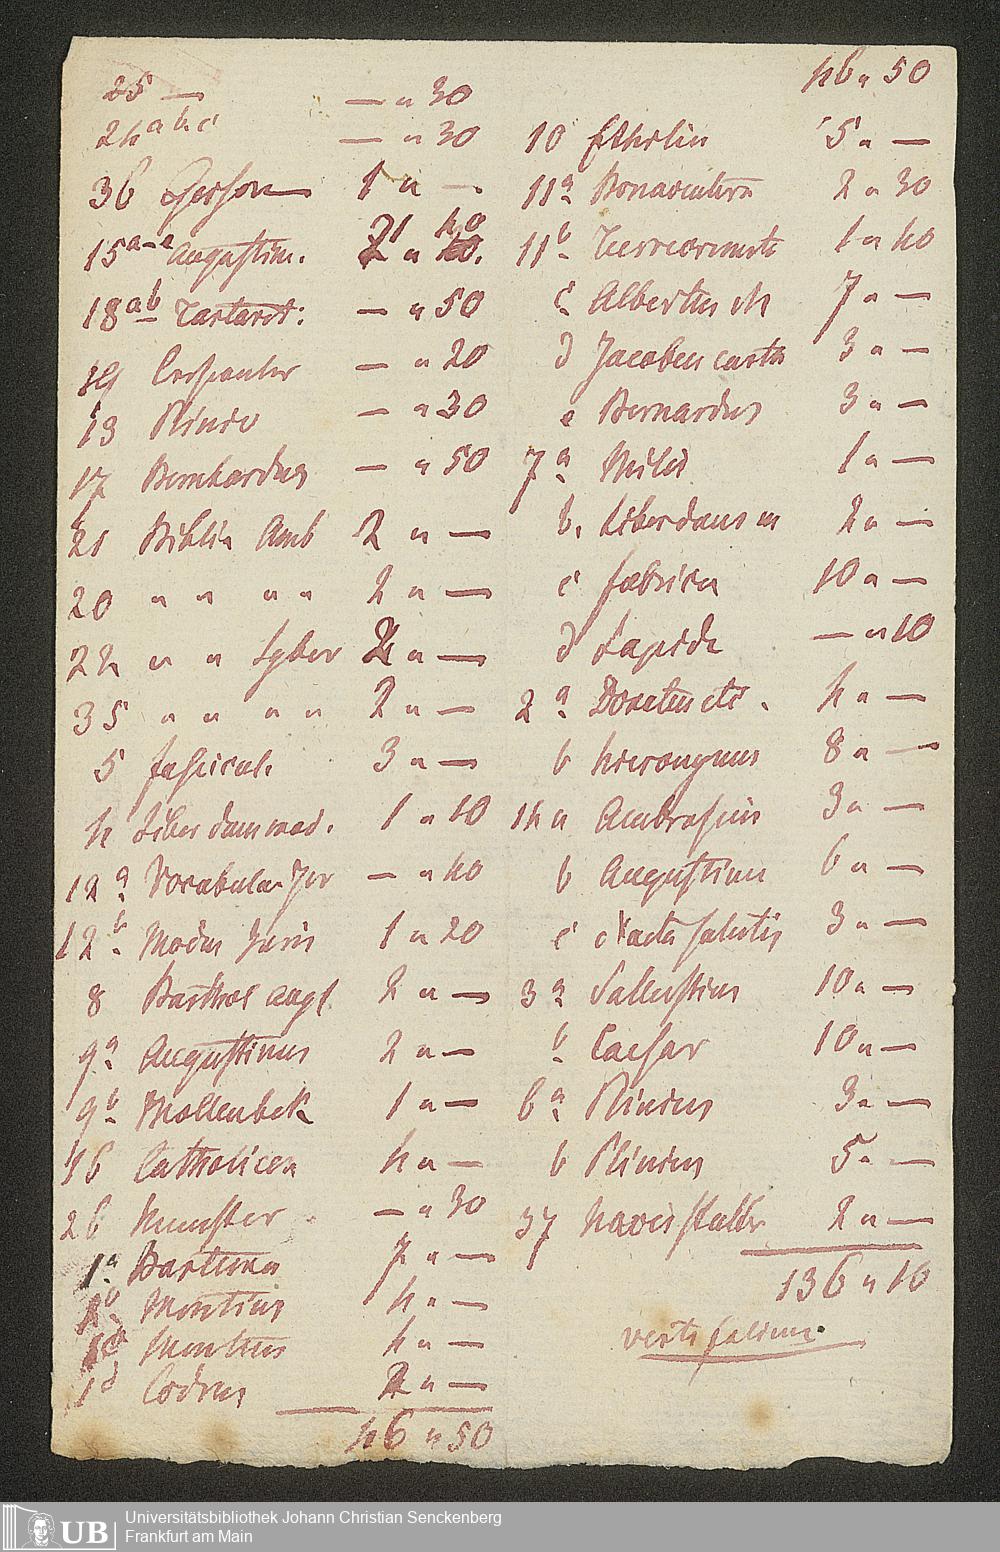 25 — — " 30
24 a b c — " 30
36 Gerson 1 " —
15 a-e Augustin. 21 " 40.
18 ab Tartaret: — " 50
19 — " 20
13 Plinio — " 30
17 Bernhardus — " 50
21 Biblia Amb 2 " —
20 " " " " 2 " —
22 " " Lyber " —
35 " " " " 2 " —
5 fascicul. 3 " —
4 Liber dam mad. 1 " 10
12 a Vocabular Jur — " 40
12 b Modus Juris 1 " 20
8 Barthol angl. 2 " —
9 a Augustinus 2 " —
9 b Mollenbek 1 " —
16 Catholicon 4 " —
26 Munster — " 30
1 a 7 " —
1 b Montius 4 " —
1 c Montius 4 " —
1 d Codrus " —
46 " 50
46 " 50
10 5 " —
11 a Bonaventura 2 " 30
11 b 1 " 40
c Albertus M 7 " —
d Jacobus 3 " —
e Bernardus 3 " —
7 a 1 " —
b. Liber dans m 2 " —
c fabrica 10 " —
d Lapide — " 10
2 a Donatus etc. 4 " —
b hieronymus 8 " —
14 a Ambrosius 3 " —
b Augustinus 6 " —
c salutis 3 " —
3 a Sallustius 10 " —
b Caesar 10 " —
6 a Plinius 3 " —
b Plinius 5 " —
37 2 " —
136 " 10
verte folium.
UB Universitätsbibliothek Johann Christian Senckenberg
Frankfurt am Main